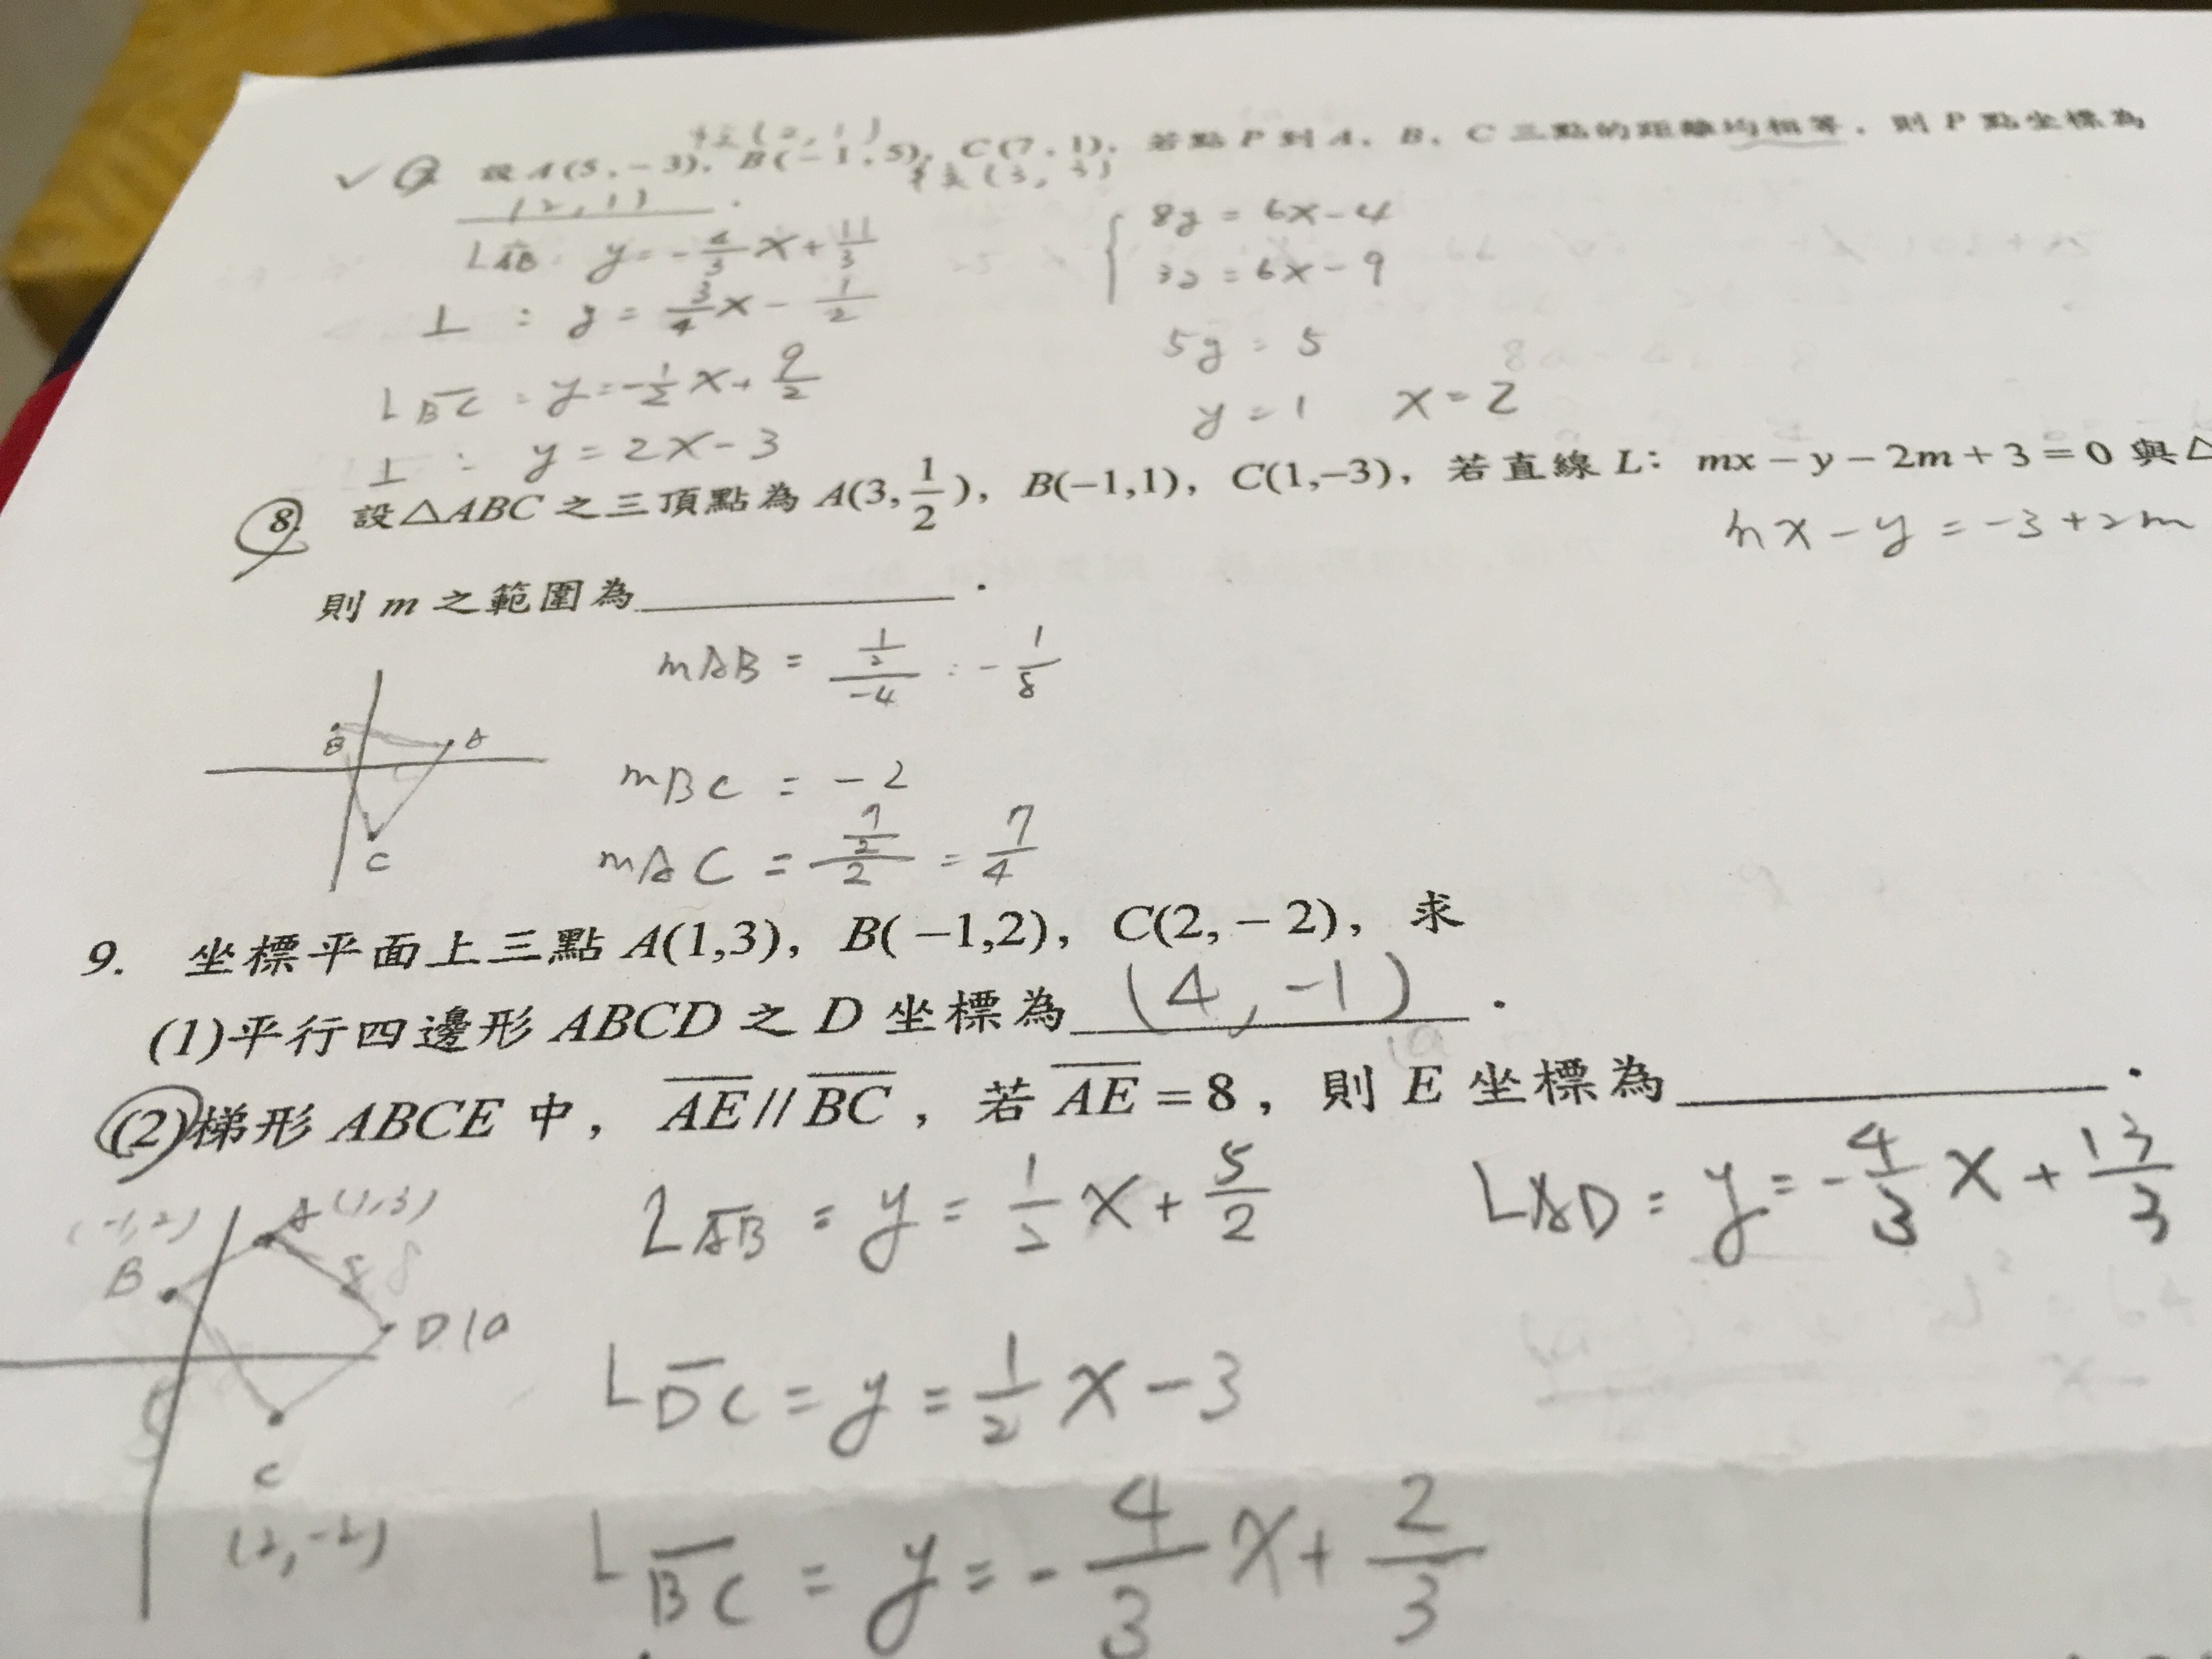 中垂(2, 1)
設 A(5, −3), B(−1, 5), C(7, 1), 若點 P 到 A, B, C 三點的距離均相等, 則 P 點坐標為
(2, 1) .
L AB: y = -4/3 x + 11/3
⊥ : y = 3/4 x - 1/2
L BC : y = -1/2 x + 9/2
⊥ : y = 2x - 3
8y = 6x - 4
= 6x - 9
5y = 5
y = 1 x = 2
8. 設△ABC 之三頂點為 A(3, 1/2), B(−1,1), C(1,−3), 若直線 L: mx − y − 2m + 3 = 0 與△
x - y = -3 + 2m
則 m 之範圍為 .
mAB = (1/2)/-4 = - 1/8
B A
C
mBC = -2
mAC = (7/2)/2 = 7/4
9. 坐標平面上三點 A(1,3), B(−1,2), C(2,−2), 求
(1)平行四邊形 ABCD 之 D 坐標為 (4, -1) .
(2)梯形 ABCE 中, AE // BC , 若 AE = 8 , 則 E 坐標為 .
L AB = y = 1/2 x + 5/2
L AD = y = -4/3 x + 13/3
(-1,2) A (1,3)
B 8
D (a
L DC = y = 1/2 x - 3
C
(2,-2)
L BC = y = -4/3 x + 2/3